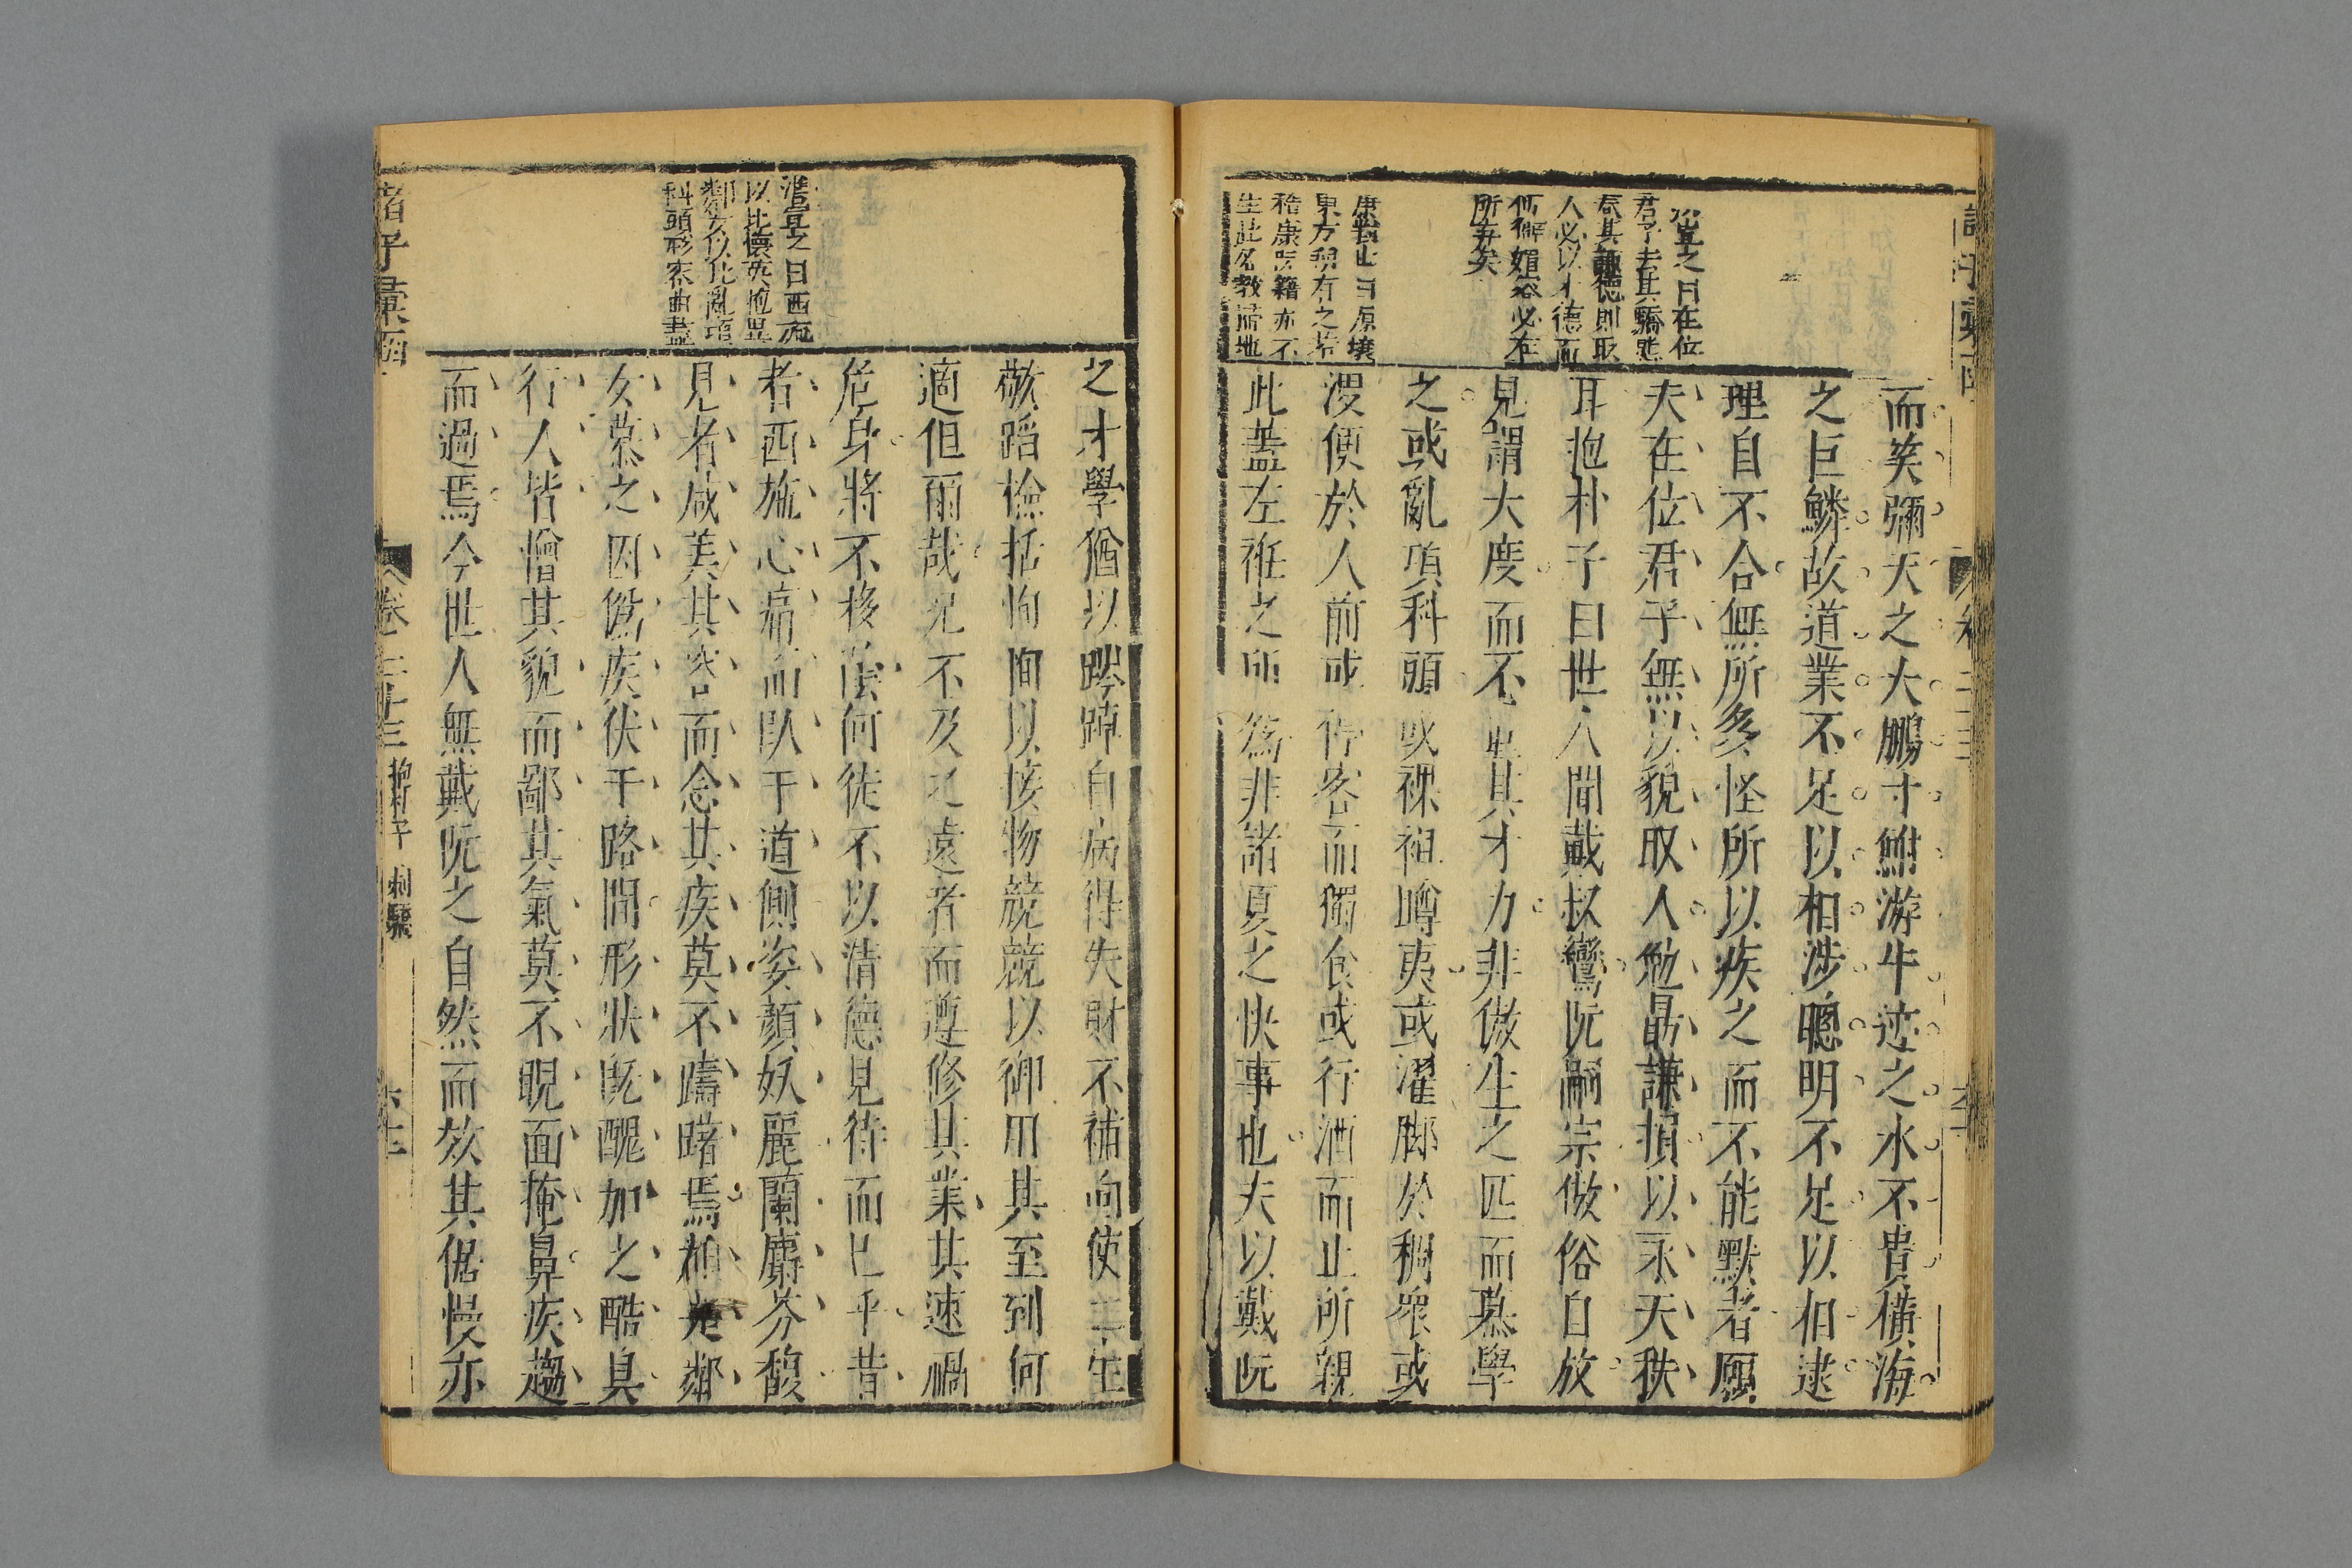 而笑彌天之大鵬寸鮒游牛迹之水不貴橫海
之巨鱗故道業不足以相涉聰明不足以相逮
理自不合無所多怪所以疾之而不能默者願
夫在位君子無以貌取人勉勗謙損以永天秩
耳抱朴子曰世人聞戴叔鸞阮嗣宗傲俗自放
見謂大度而不其才力非傲生之匹而慕學
之或亂項科頭或裸袒蹲夷或濯脚於稠衆或
溲便於人前或停客而獨食或行酒而止所親
此蓋左衽之所爲非諸夏之快事也夫以戴阮
之曰在位
君子去其驕
其德則取
人必以才德而
媚必在
所弃矣
曰原壤
果方稅有之若
嵇康阮籍亦不
生此名教而地
之才學猶以踸踔自病得失財不補向使二生
敬蹈檢括恂恂以接物競競以御用其至到何
適但爾哉况不及之遠者而遵修其業其速禍
危身將不移陰何徒不以清德見待而已乎昔
者西施心痛而臥于道側姿顔妖麗蘭麝芬馥
見者咸美其容而念其疾莫不躊躇焉於是鄰
女慕之因僞疾伏于路間形狀旣醜加之酷臭
行人皆憎其貌而鄙其氣莫不睨面掩鼻疾趨
而過焉今世人無戴阮之自然而效其倨慢亦
之曰西施
以比懷英抱異
鄰女以比亂項
科頭形容曲盡
諸子彙函
卷二十三
抱朴子
刺驕
六十二